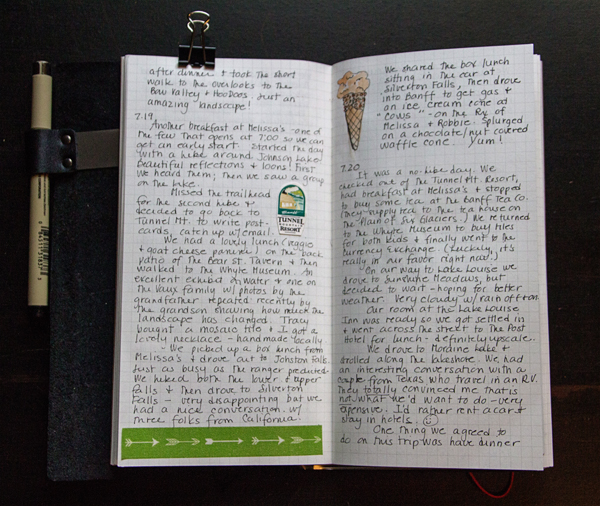 after dinner & took the short
walk to the overlooks to the
Bow Valley & HooDoos. Just an
amazing landscape!
7.19
Another breakfast at Melissa's - one of
the few that opens at 7:00 so we can
get an early start. Started the day
with a hike around Johnson Lake!
Beautiful reflections & loons! First
we heard them; then we saw a group
on the lake.
Missed the trailhead
for the second hike &
decided to go back to
Tunnel Mt. to write post-
cards, catch up w/email.
TUNNEL
MOUNTAIN
RESORT
We had a lovely lunch (veggie
& goat cheese panini) on the back
patio of the Bear St. Tavern & then
walked to the Whyte Museum. An
excellent exhibit on water & one on
the Vaux family w/ photos by the
grandfather repeated recently by
the grandson showing how much the
landscape has changed. Tracy
bought a mosaic tile & I got a
lovely necklace - handmade locally
We picked up a box lunch from
Melissa's & drove out to Johnston Falls.
Just as busy as the ranger predicted.
We hiked both the lower & upper
Falls & then drove to Silverton
Falls - very disappointing but we
had a nice conversation w/
three folks from California.
We shared the box lunch
sitting in the car at
Silverton Falls, then drove
into Banff to get gas &
an ice cream cone at
"COWS" - on the Rx of
Melissa & Robbie. Splurged
on a chocolate/nut covered
waffle cone... Yum!
7.20
It was a no-hike day. We
checked out of the Tunnel Mt Resort,
had breakfast at Melissa's & stopped
to buy some tea at the Banff Tea Co.
(they supply tea to the tea house on
the Plain of Six Glaciers.) We returned
to the Whyte Museum to buy tiles
for both kids & finally went to the
currency exchange. (Luckily, it's
really in our favor right now.)
On our way to Lake Louise we
drove to Sunshine Meadows, but
decided to wait - hoping for better
weather. Very cloudy w/ rain off & on.
Our room at the Lake Louise
Inn was ready so we got settled in
& went across the street to The Post
Hotel for lunch - definitely upscale.
We drove to Moraine Lake &
strolled along the lakeshore. We had
an interesting conversation with a
couple from Texas who travel in an RV.
They totally convinced me that is
not what we'd want to do - very
expensive. I'd rather rent a car &
stay in hotels.
One thing we agreed to
do on this trip was have dinner